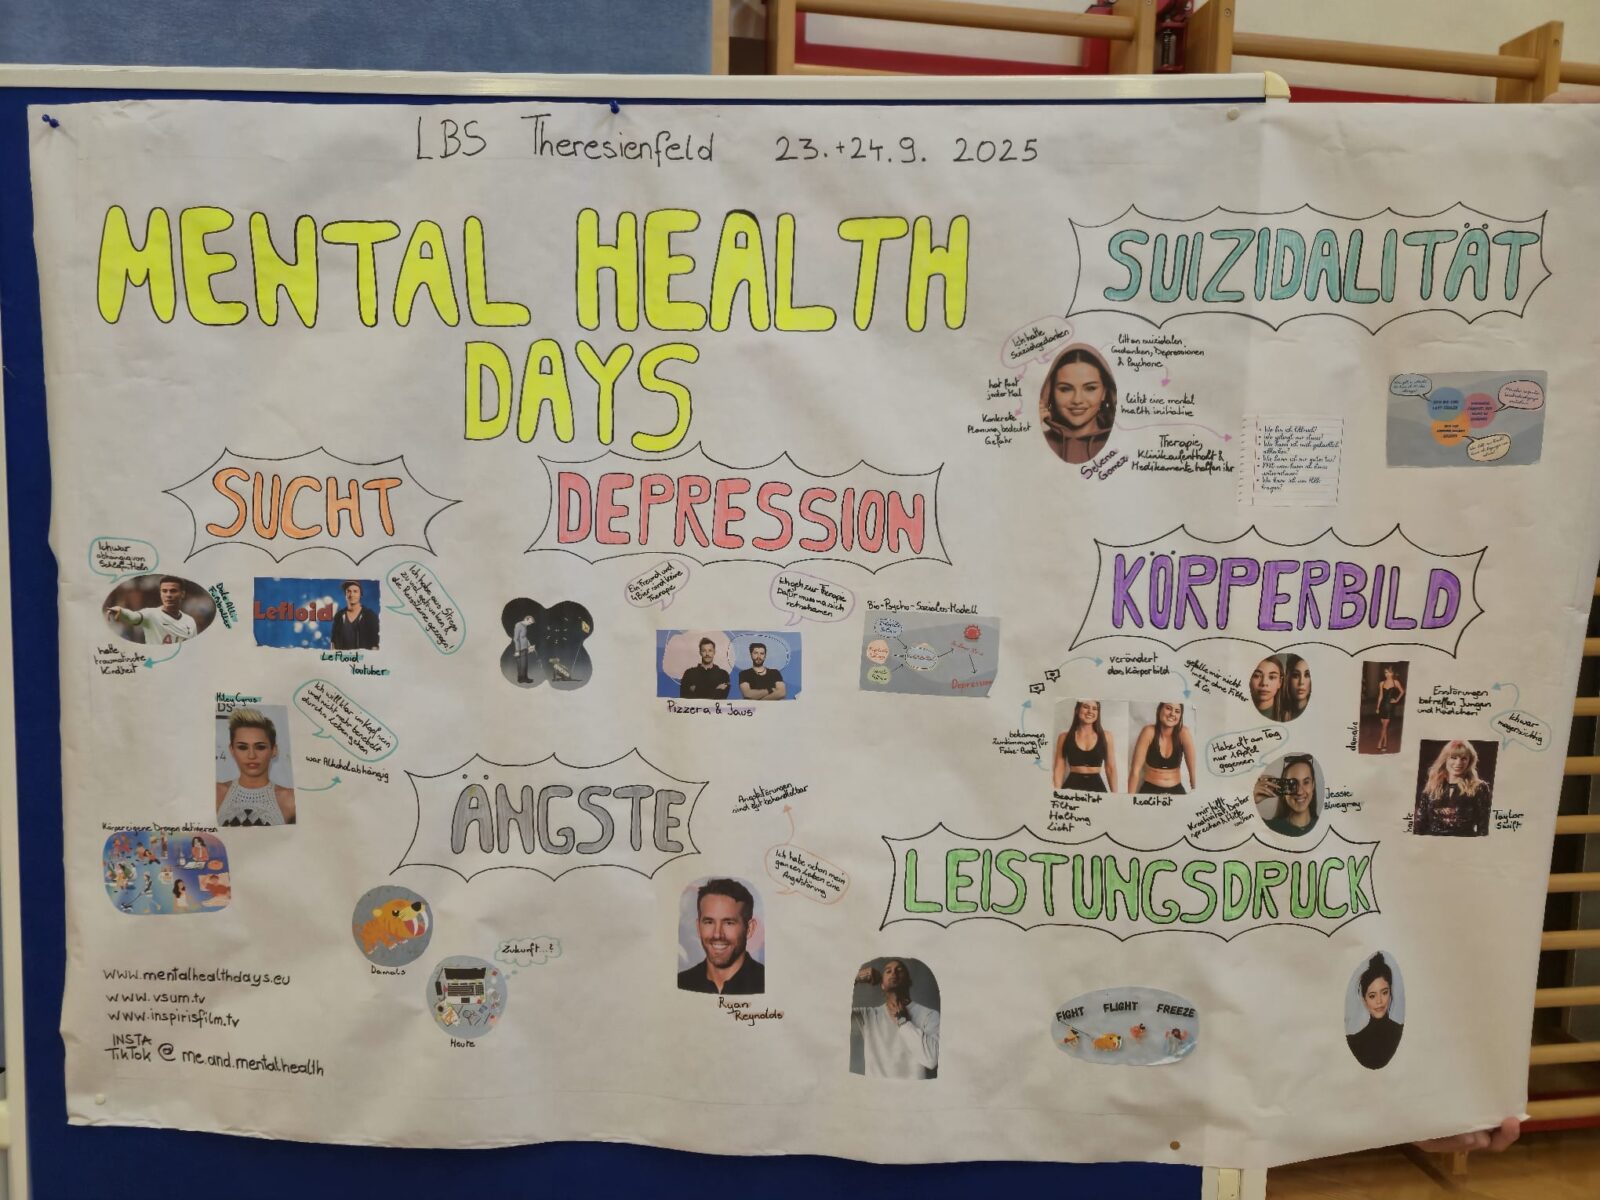 LBS Theresienfeld 23.+24.9. 2025
MENTAL HEALTH
DAYS
SUIZIDALITÄT
Ich hatte
Suizidgedanken
litt an suizidalen
Gedanken, Depressionen
& Psychose
hat fast
jeder Mal
Konkrete
Planung bedeutet
Gefahr
leitet eine mental
health initiative
Therapie,
Klinikaufenthalt &
Medikamente helfen ihr
Selena
Gomez
SUCHT
Ich war
abhängig von
Schlafmitteln
Dele Alli
Fußballer
hatte
traumatische
Kindheit
Lefloid
LeFloid
Youtuber
Miley Cyrus
Ich will klar im Kopf sein
und nicht mehr benebelt
durchs Leben gehen
war Alkoholabhängig
Körpereigene Drogen aktivieren
DEPRESSION
Ein Freund und
4 Bier sind keine
Therapie
Ich geh zur Therapie
Dafür muss ma sich
net schämen
Pizzera & Jaus
Bio-Psycho-Soziales-Modell
Depression
KÖRPERBILD
verändert
das Körperbild
gefalle mir nicht
mehr ohne Filter
& Co.
bekommen
Zustimmung für
Fake-Body
Bearbeitet
Filter
Haltung
Licht
Realität
Habe oft am Tag
nur 1 Apfel
gegessen
mir hilft
Kreativität, Drüber
sprechen & Hilfe
Jessie
damals
Essstörungen
betreffen Jungen
und Mädchen
Ich war
magersüchtig
heute
Taylor
Swift
ÄNGSTE
Angststörungen
sind gut behandelbar
Ich habe schon mein
ganzes Leben eine
Angststörung
Damals
Zukunft...?
Heute
Ryan
Reynolds
LEISTUNGSDRUCK
FIGHT FLIGHT FREEZE
www.mentalhealthdays.eu
www.vsum.tv
www.inspirisfilm.tv
INSTA
TikTok @ me.and.mentalhealth